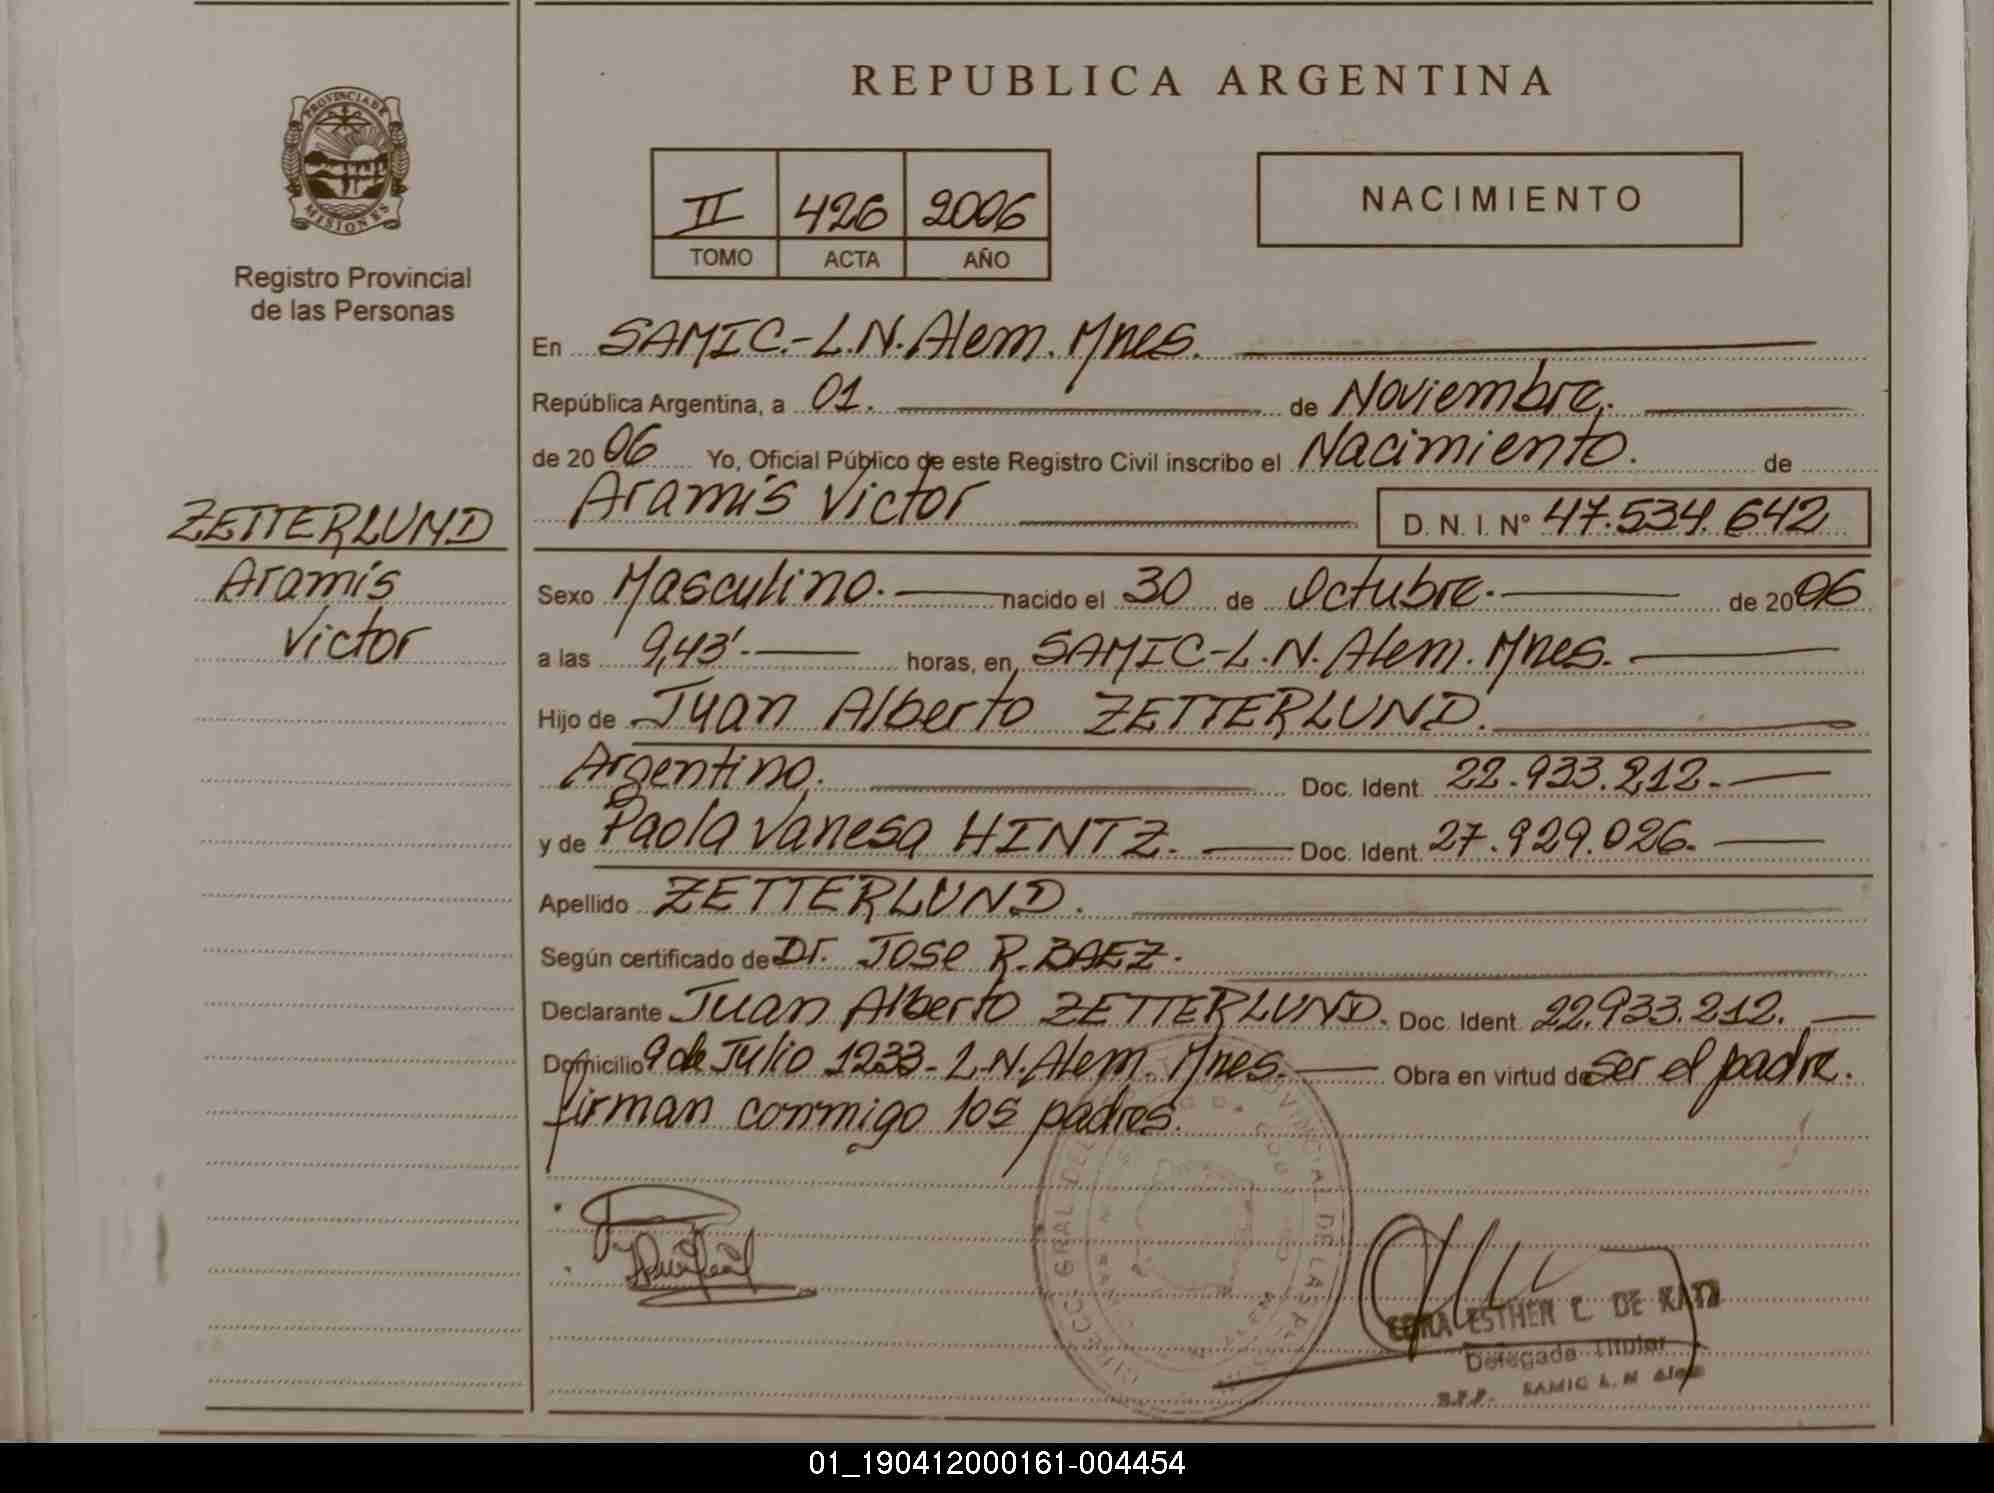 REPUBLICA ARGENTINA
PROVINCIA DE
MISIONES
Registro Provincial
de las Personas
II 426 2006
TOMO ACTA AÑO
NACIMIENTO
En SAMIC.-L.N.Alem. Mnes.
República Argentina, a 01. de Noviembre.
de 2006 Yo, Oficial Público de este Registro Civil inscribo el Nacimiento. de
Aramís Victor D. N. I. N° 47.534.642
ZETTERLUND
Aramís
Victor
Sexo Masculino. nacido el 30 de Octubre. de 2006
a las 9,43'. horas, en SAMIC-L.N.Alem. Mnes.
Hijo de Juan Alberto ZETTERLUND.
Argentino. Doc. Ident. 22.933.212.
y de Paola Vanesa HINTZ. Doc. Ident. 27.929.026.
Apellido ZETTERLUND.
Según certificado de Dr. Jose R. BAEZ.
Declarante Juan Alberto ZETTERLUND. Doc. Ident. 22.933.212.
Domicilio 9 de Julio 1233-L.N.Alem. Mnes. Obra en virtud de ser el padre.
firman conmigo los padres.
ESTHER C. DE
Delegada Titular
SAMIC L. N Alem
01_190412000161-004454